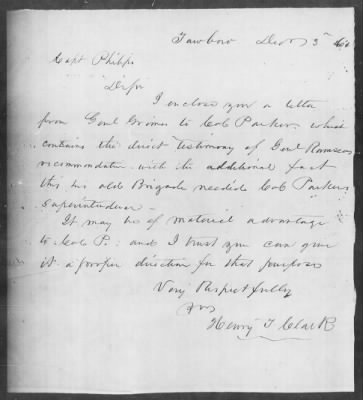 Tarboro Decr 3rd
Capt Philips
D Sir
I enclose you a letter
from Genl Grimes to Col Parker, which
contains the direct testimony of Genl Ramseurs
recommendation with the additional fact
this his old Brigade needed Col Parkers
superintendence -
It may be of material advantage
to Col P. and I trust you can give
it a proper direction for that purpose
Very Respectfully
Yrs
Henry T Clark